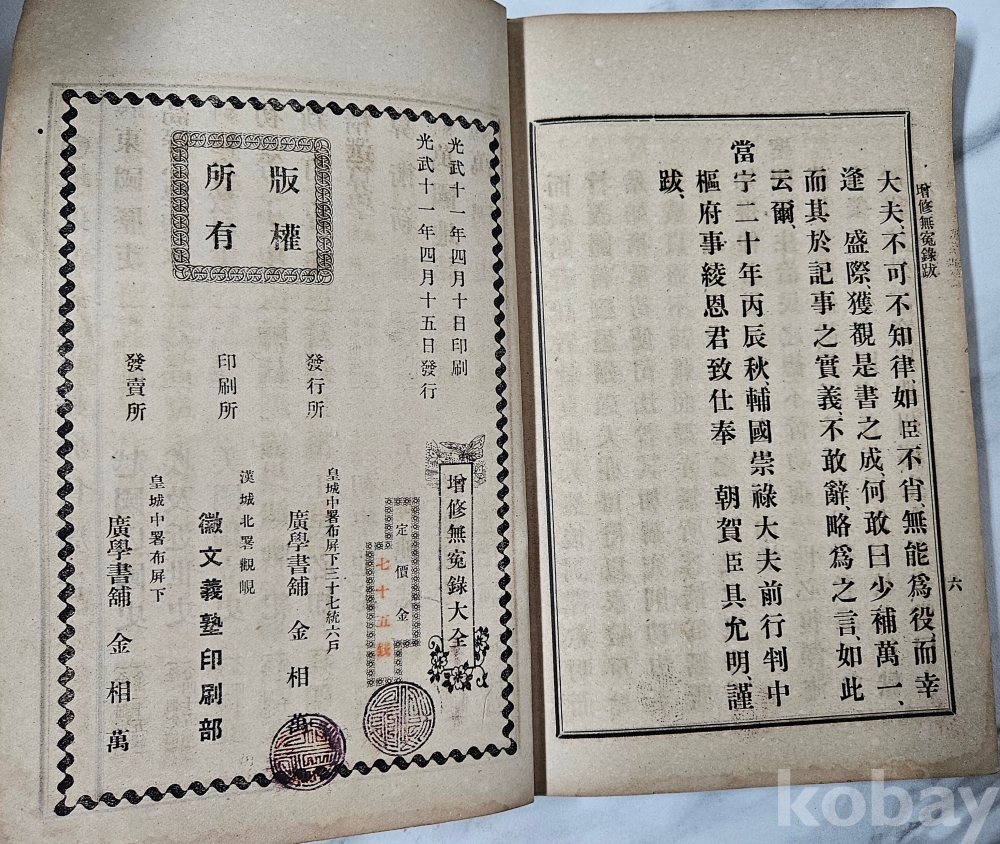 增修無寃錄跋
大夫、不可不知律、如臣、不肖無能爲役、而幸
逢 盛際、獲覩是書之成、何敢曰少補萬一、
而其於記事之實義、不敢辭、略爲之言、如此
云爾、
當宁二十年丙辰秋、輔國崇祿大夫前行判中
樞府事綾恩君致仕奉 朝賀臣具允明、謹
跋、
六
增修無寃錄大全
定價金
七十五錢
光武十一年四月十日印刷
光武十一年四月十五日發行
版權
所有
發行所
皇城中署布屏下三十七統六戶
廣學書舖 金相萬
印刷所
漢城北署觀峴
徽文義塾印刷部
發賣所
皇城中署布屏下
廣學書舖 金相萬
kobay